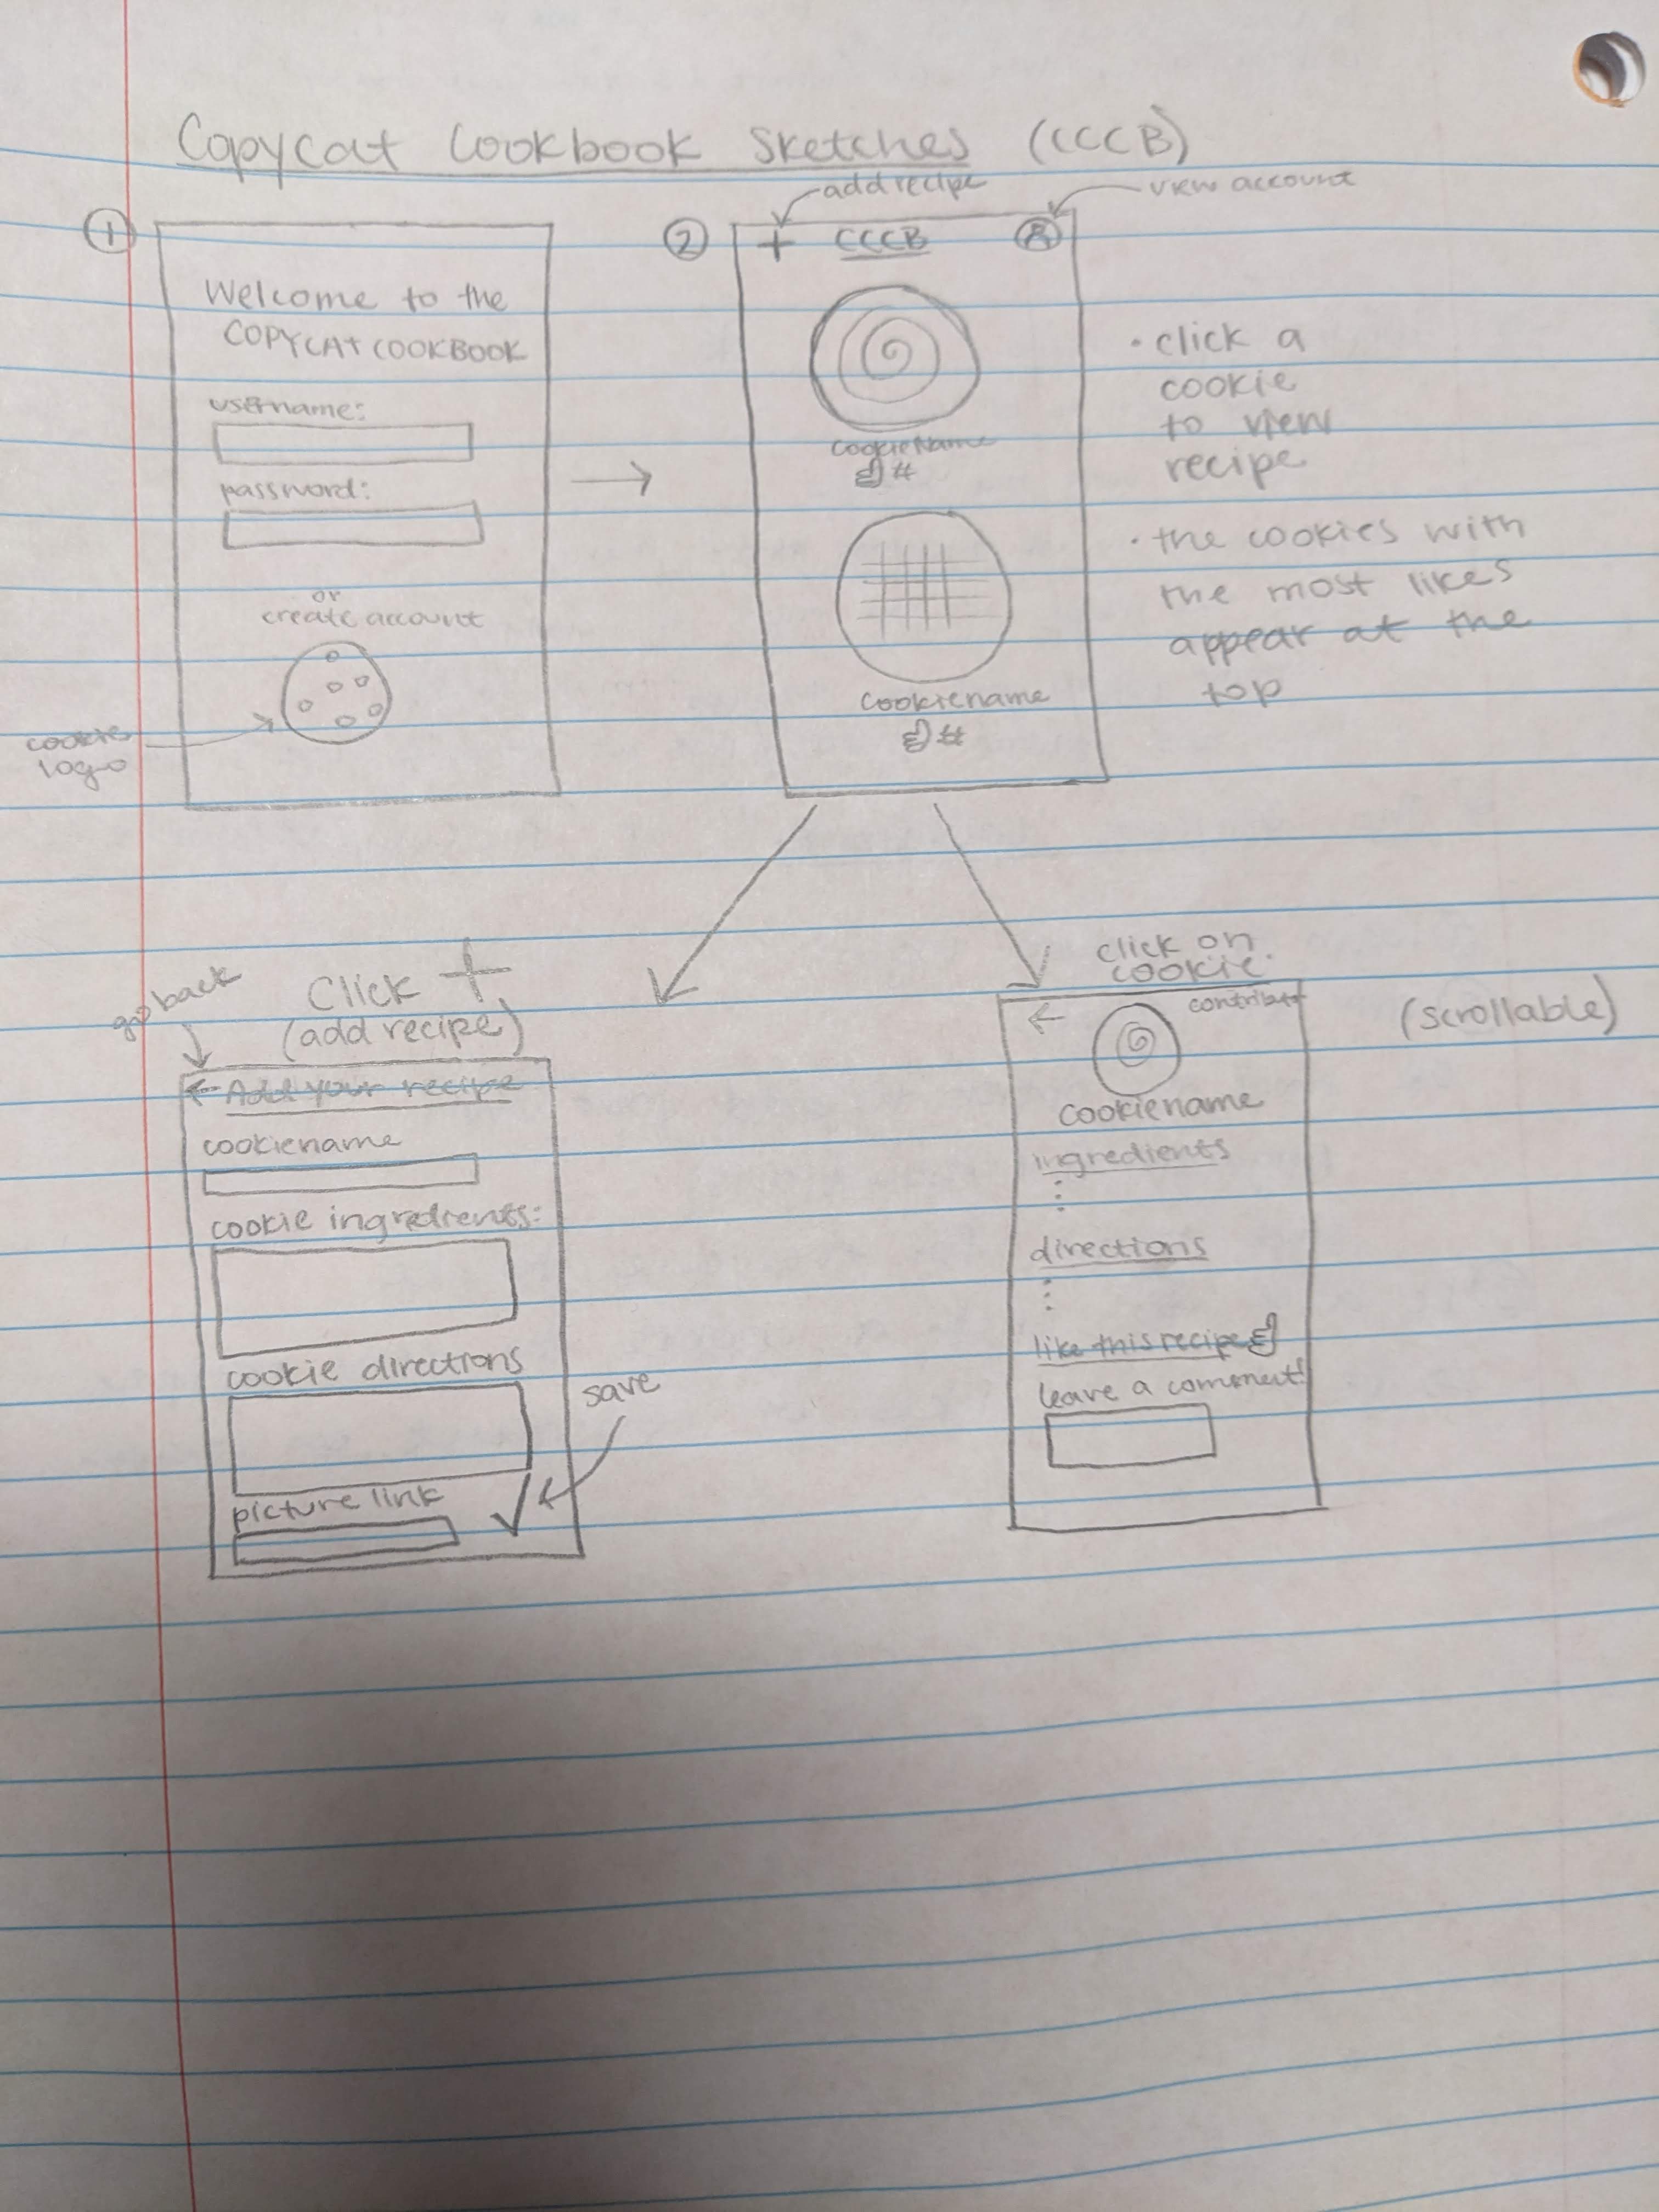 Copycat Cookbook Sketches (CCCB)
add recipe
view account
1
Welcome to the
COPYCAT COOKBOOK
username:
password:
or
create account
cookie
logo
2
+ CCCB
CookieName
#
Cookiename
#
• click a
cookie
to view
recipe
• the cookies with
the most likes
appear at the
top
go back
Click +
(add recipe)
← Add your recipe
cookiename
cookie ingredients:
cookie directions
picture link
save
click on
cookie
(scrollable)
←
Cookiename
ingredients
directions
like this recipe
leave a comment!